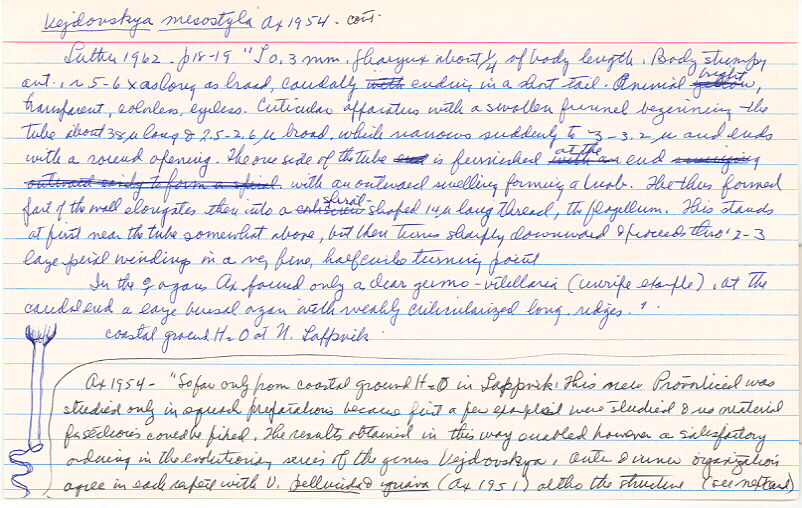 Vejdovskya mesostyla Ax 1954 - cont.
Luther 1962 - p18-19 "To 0.3 mm. Pharynx about 1/4 of body length. Body stumpy
ant., ~ 5-6 x as long as broad, caudally with ending in a short tail. Animal yellow bright,
transparent, colorless, eyeless. Cuticular apparatus with a swollen funnel beginning the
tube about 38 µ long & 2.5-2.6 µ broad, which narrows suddenly to ~3-3.2 µ and ends
with a round opening. The one side of the tube end is furnished with an at the end
outward to form a spiral. with an outward swelling forming a knob. The thus formed
part of the wall elongates then into a spiral-shaped 14 µ long thread, the flagellum. This stands
at first near the tube somewhat above, but then turns sharply downward & proceeds thro' 2-3
large windings in a very fine, half circle turning point
In the ♀ organs Ax found only a clear germo-vitellaria (unripe example), at the
caudal end a large bursal organ with weakly cuticularized long. ridges."
coastal ground H2O at N. Lappvik
Ax 1954 - "So far only from coastal ground H2O in Lappvik. This new Provorticid was
studied only in squash preparations because first a few examples were studied & no material
for sections could be fixed. The results obtained in this way enabled however a satisfactory
ordering in the evolutionary series of the genus Vejdovskya. Outer & inner organization
agree in each respect with V. pellucida & ignava (Ax 1951) altho the structure (see next card)